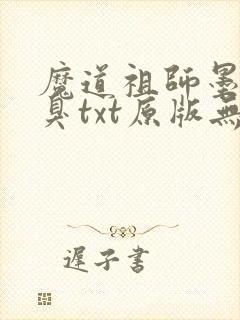 魔道祖師墨
臭txt原版無
遲子書